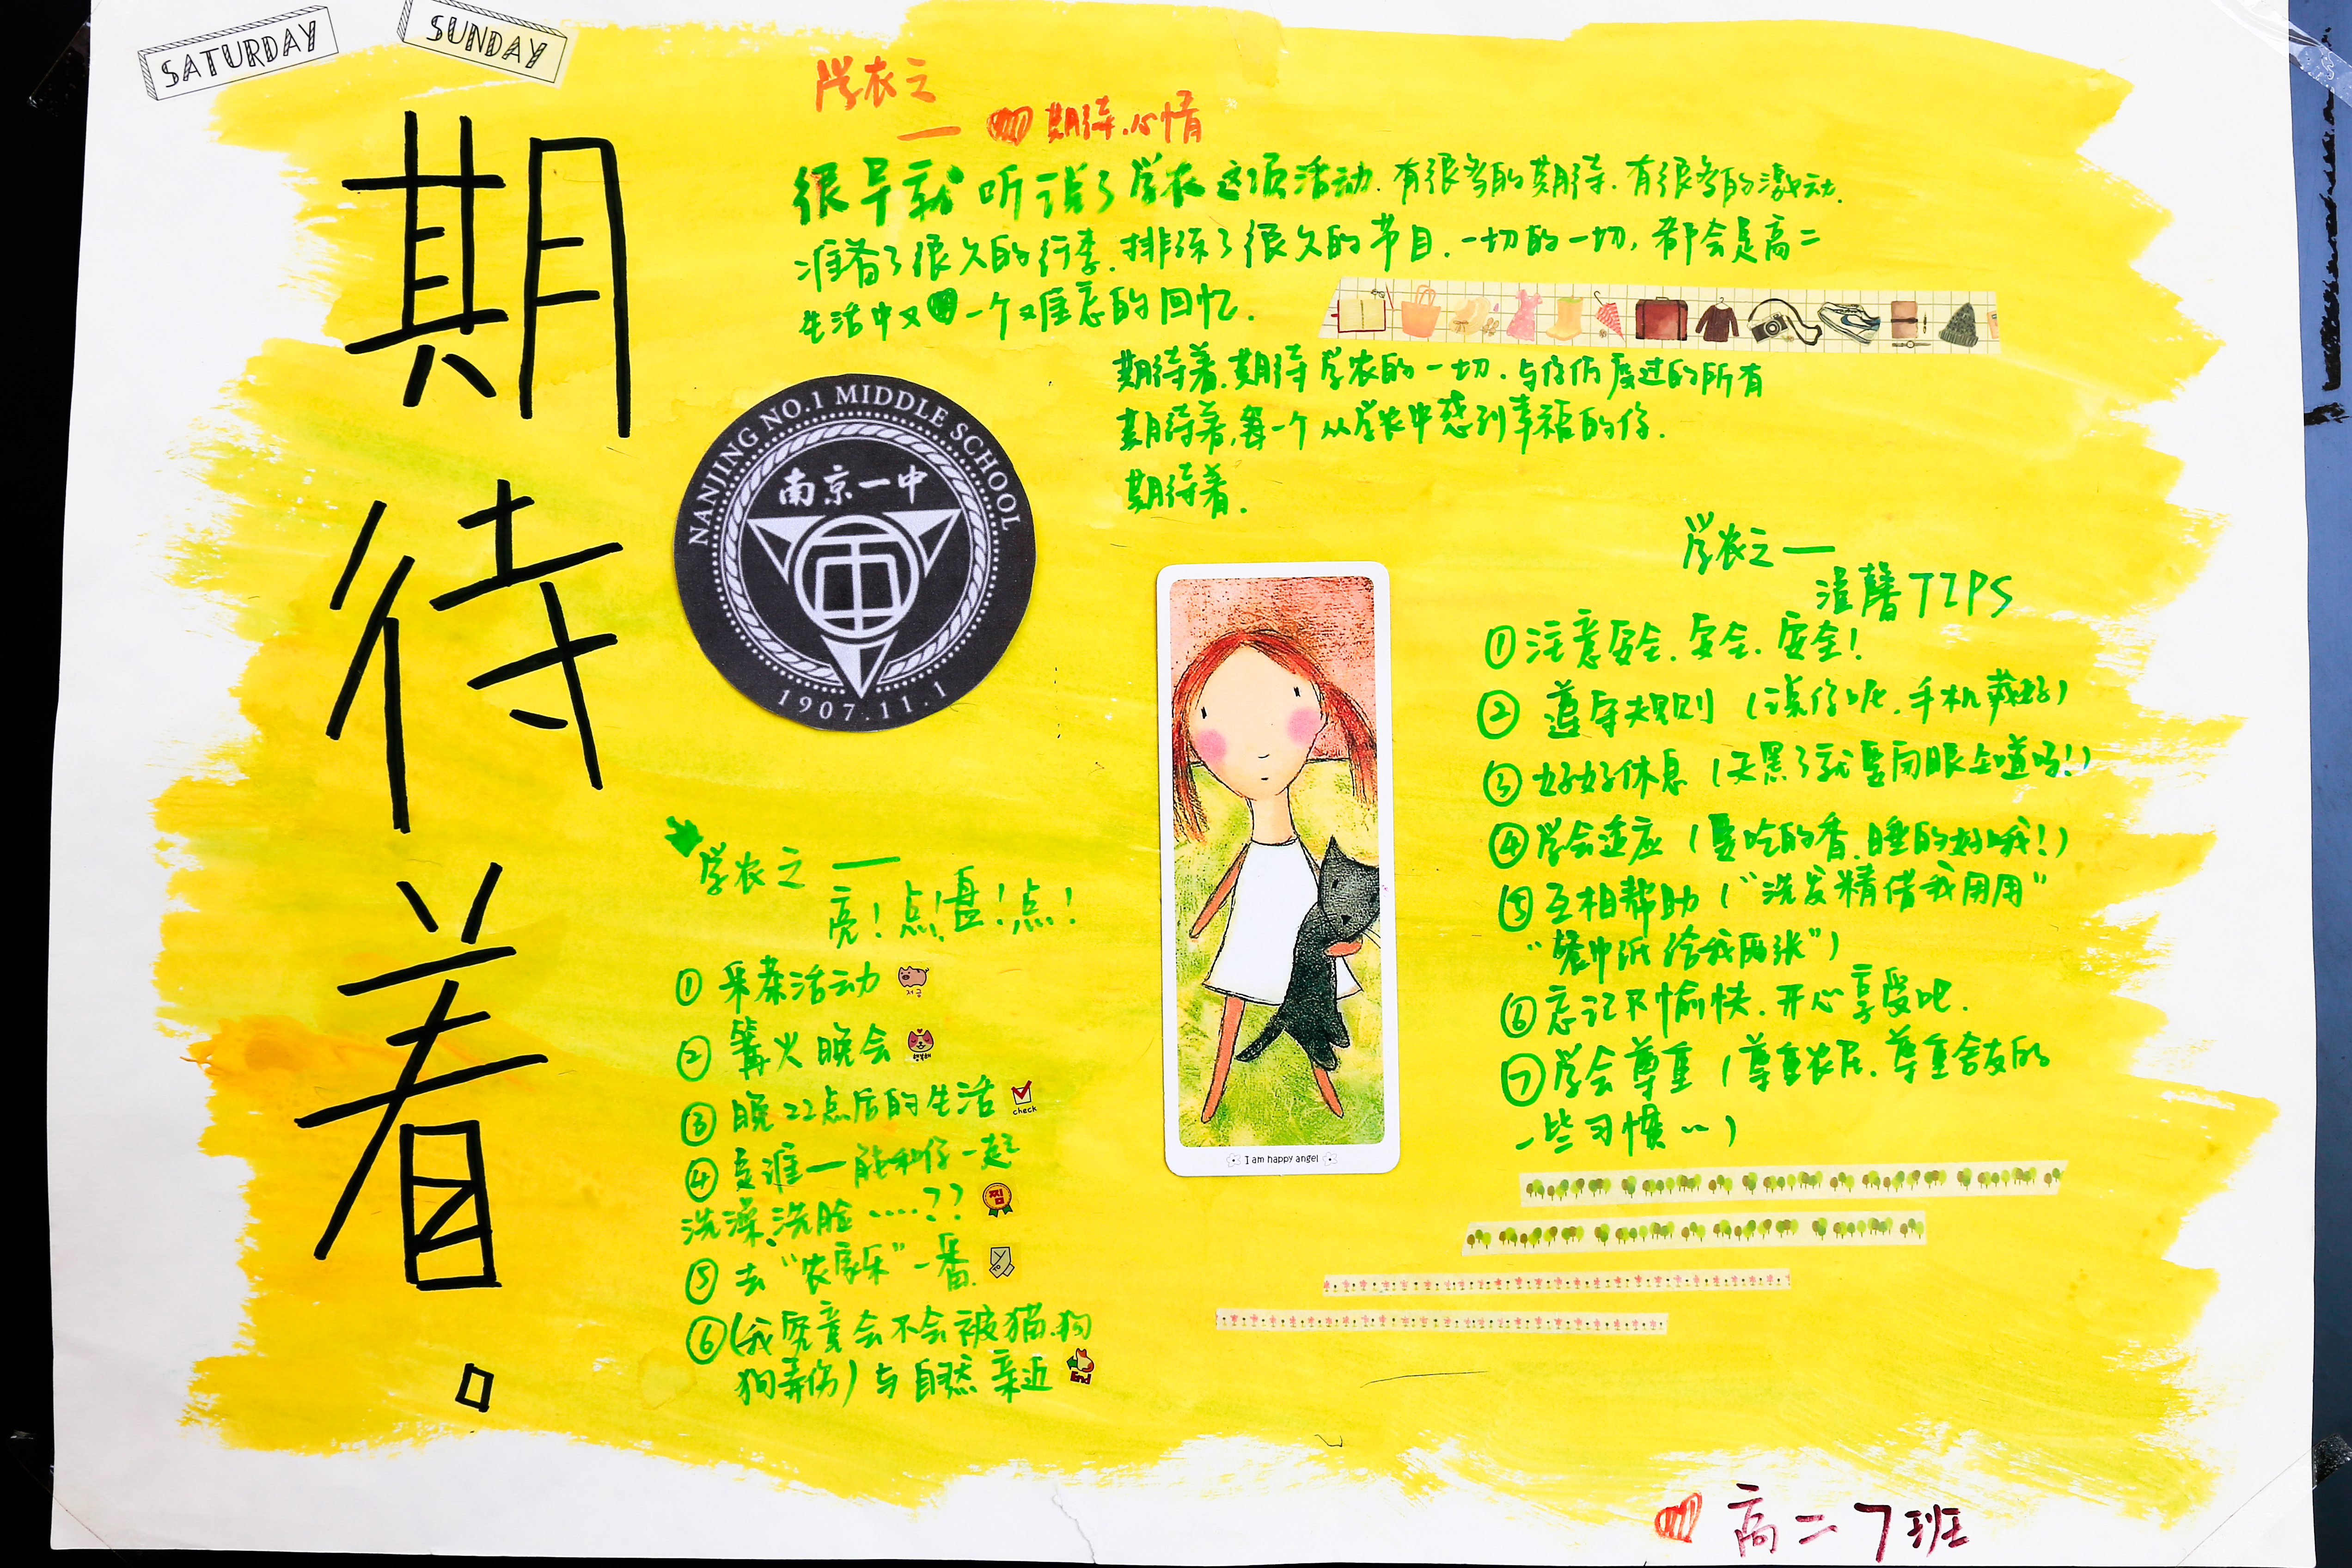 SATURDAY
SUNDAY
期待着。
学农之
— 期待心情
很早就听说了学农这项活动.有很多的期待.有很多的激动.
准备了很久的行李.排练了很久的节目.一切的一切,都会是高二
生活中又一个难忘的回忆.
期待着.期待学农的一切.与你们度过的所有
期待着,每一个从学农中感到幸福的你.
期待着.
NANJING NO.1 MIDDLE SCHOOL
南京一中
1907.11.1
学农之——
亮!点!盘!点!
①采茶活动
저금
②篝火晚会
행복해
③晚22点后的生活
check
④是谁—能和你一起
洗澡、洗脸……??
찜
⑤去“农家乐”一番.
TO
⑥(我究竟会不会被猫.狗
狗弄伤)与自然亲近
End
I am happy angel
学农之——
温馨TIPS
①注意安全.安全.安全!
②遵守规则(说你呢.手机藏好)
③好好休息(天黑了就要闭眼知道吗!)
④学会适应(要吃的香.睡的好哦!)
⑤互相帮助(“洗发精借我用用”
“餐巾纸给我两张”)
⑥忘记不愉快.开心享受吧.
⑦学会尊重(尊重农民.尊重舍友的
一些习惯…)
高二7班